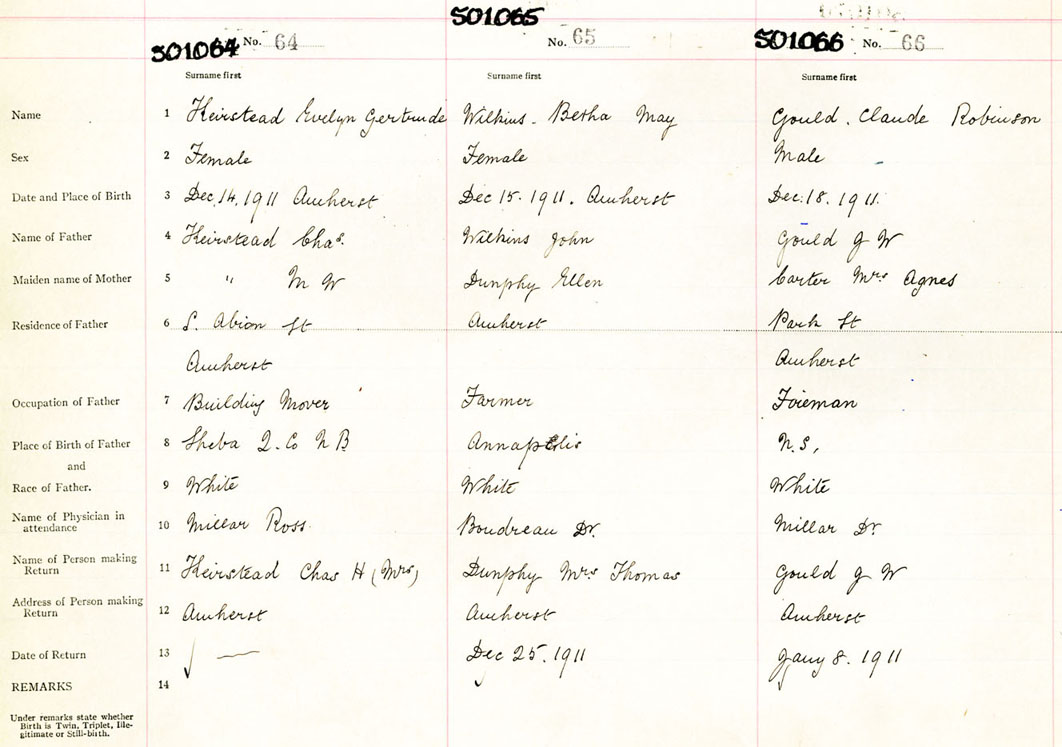 S01064 No. 64 S01065 No. 65 S01066 No. 66
Surname first Surname first Surname first
Name 1 Keirstead Evelyn Gertrude Wilkins - Betha May Gould . Claude Robinson
Sex 2 Female Female Male
Date and Place of Birth 3 Dec. 14. 1911 Amherst Dec 15. 1911. Amherst Dec. 18. 1911.
Name of Father 4 Keirstead Chas. Wilkins John Gould J W
Maiden name of Mother 5 " M W Dunphy Ellen Carter Mrs Agnes
Residence of Father 6 S. Albion St Amherst Park St
Amherst Amherst
Occupation of Father 7 Building Mover Farmer Foreman
Place of Birth of Father 8 Sheba Q. Co N B Annapolis N.S,
and
Race of Father. 9 White White White
Name of Physician in
attendance 10 Millar Ross. Boudreau Dr. Millar Dr
Name of Person making
Return 11 Keirstead Chas H (Mrs) Dunphy Mrs Thomas Gould J W
Address of Person making
Return 12 Amherst Amherst Amherst
Date of Return 13 — Dec 25. 1911 Jany 8. 1911
REMARKS 14
Under remarks state whether
Birth is Twin, Triplet, Ille-
gitimate or Still-birth.